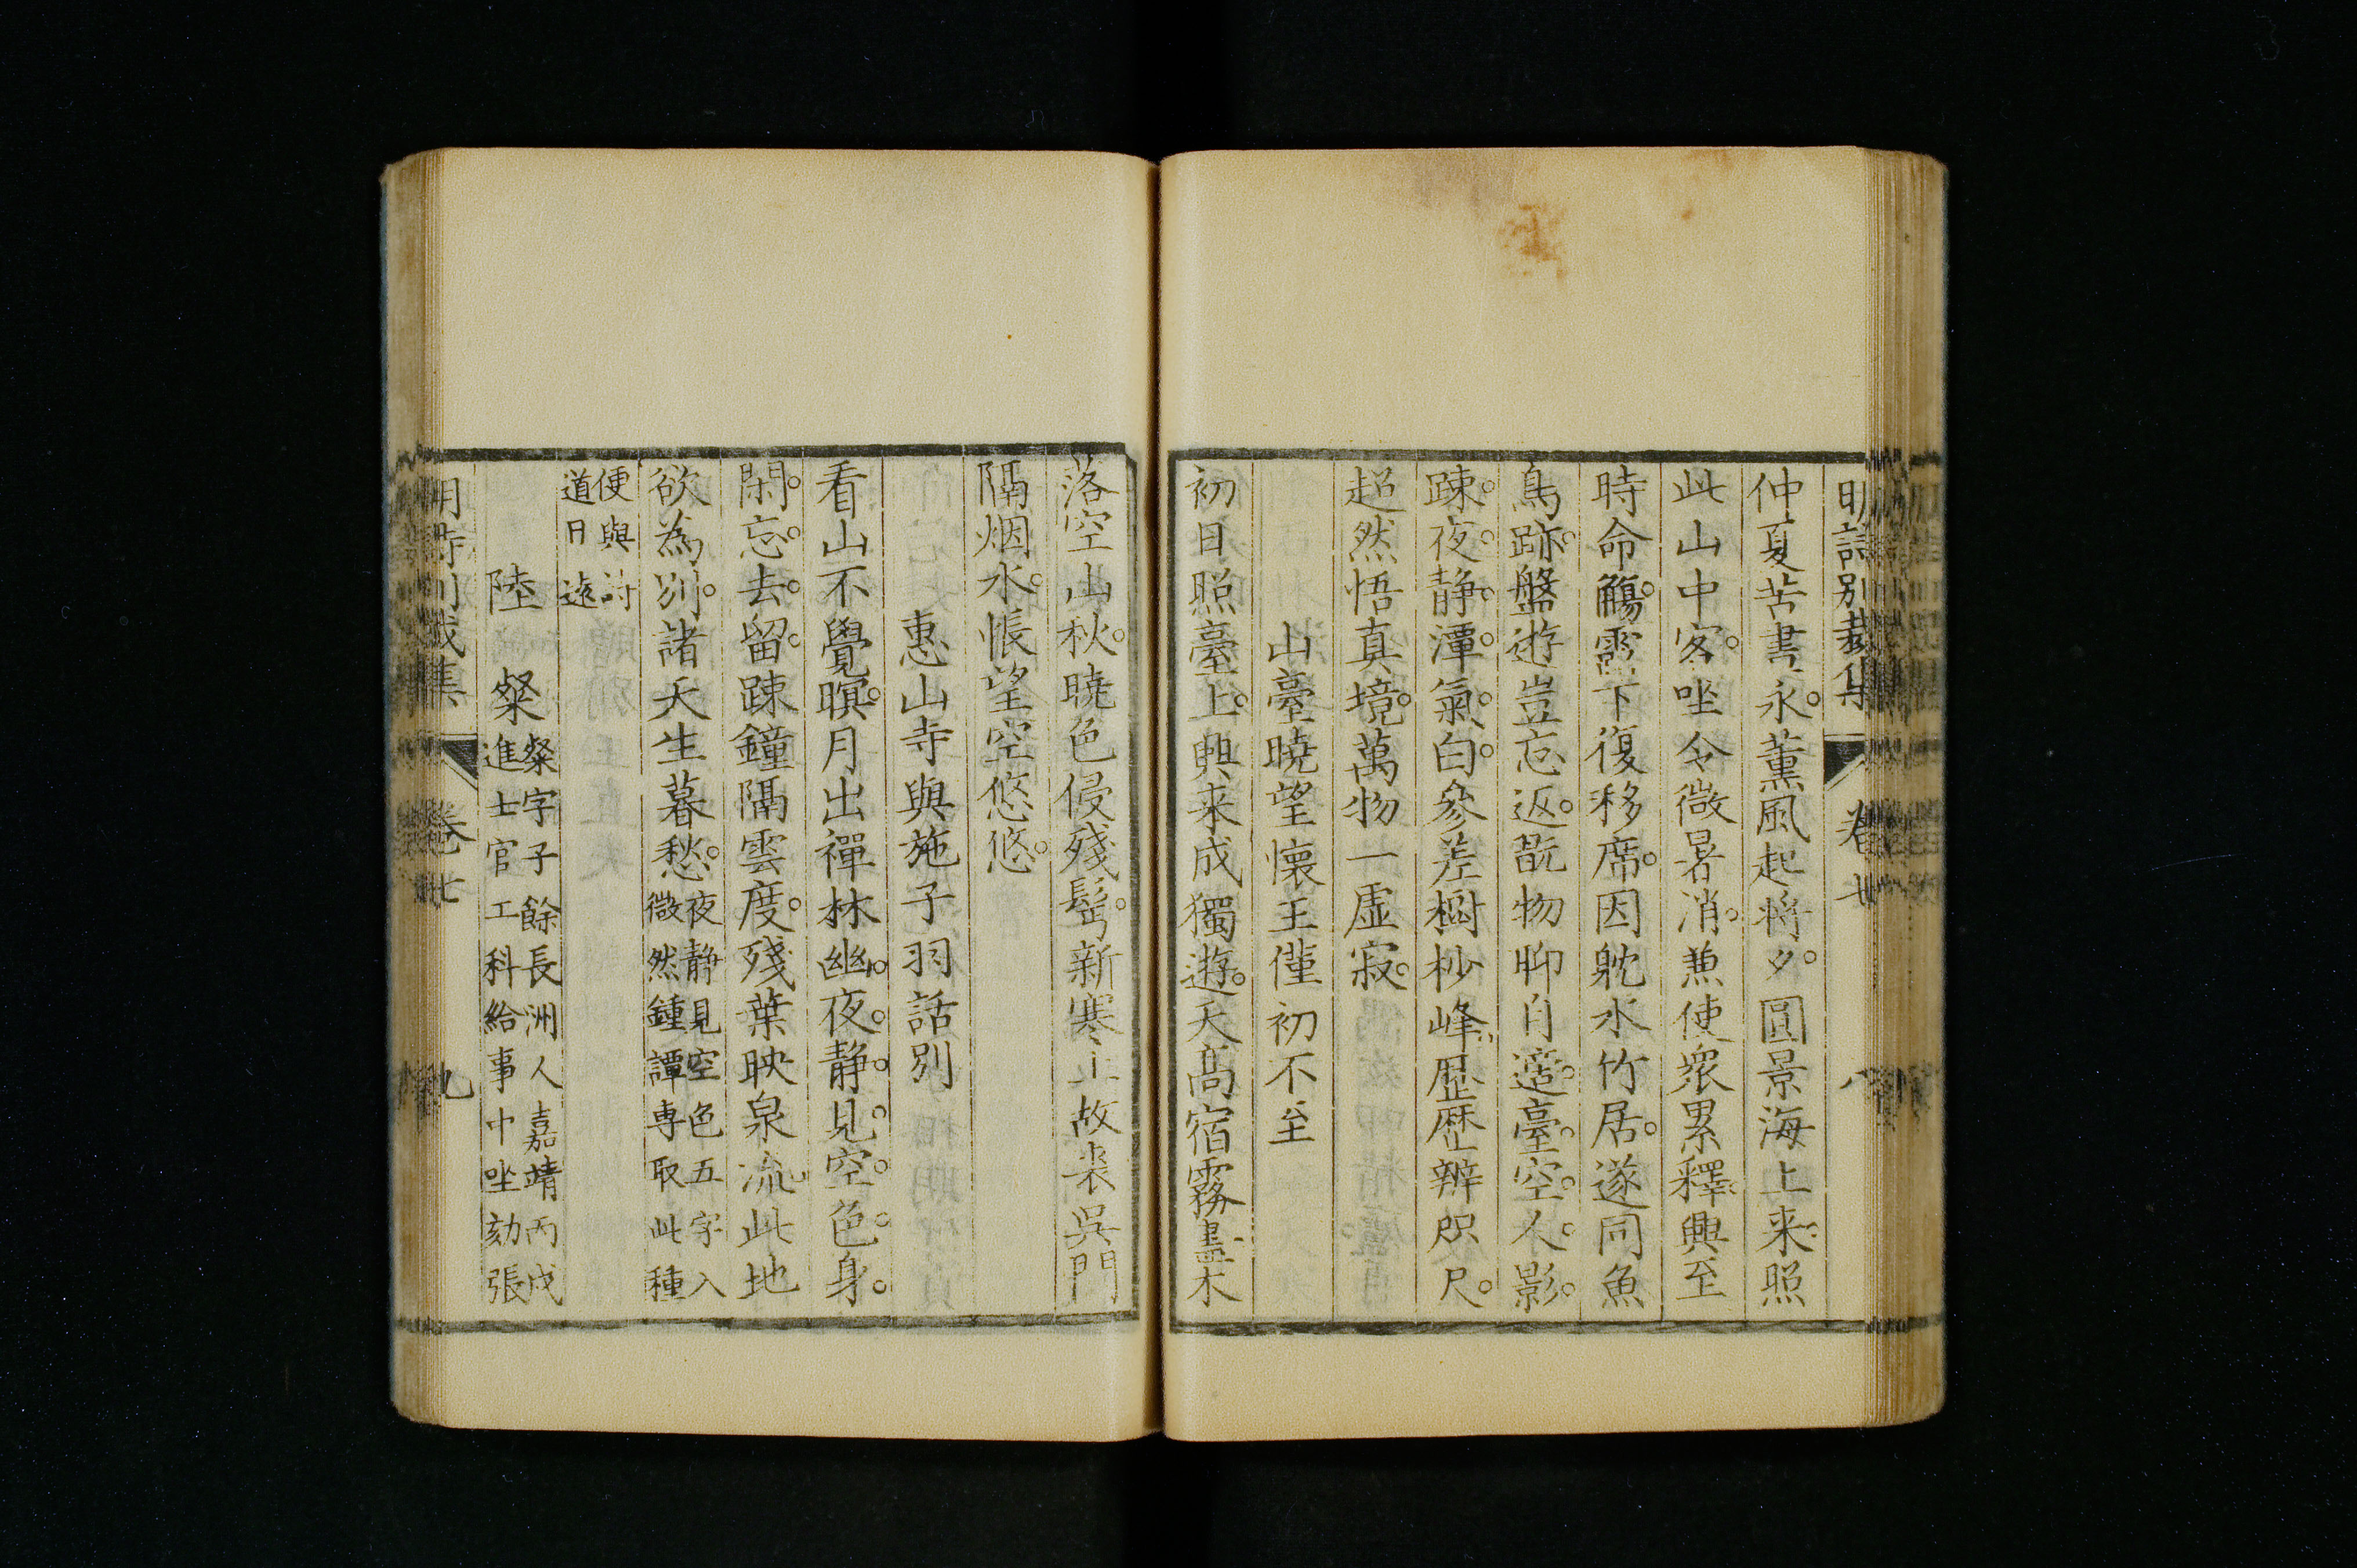 明詩別裁集 卷七 八
仲夏苦書永薰風起將夕圓景海上来照
此山中客坐令微暑消兼使衆累釋興至
時命觴露下復移席因躭水竹居遂同魚
鳥跡盤遊豈忘返翫物聊自適臺空人影
踈夜静潭氣白參差樹杪峰歷歷辨咫尺
超然悟真境萬物一虛寂
山臺曉望懷王僅初不至
初日照臺上興来成獨遊天高宿霧盡木
落空山秋曉色侵殘髩新寒上故裘吳門
隔烟水悵望空悠悠
惠山寺與施子羽話別
看山不覺暝月出禪林幽夜静見空色身
閑忘去留踈鐘隔雲度殘葉映泉流此地
欲為別諸天生暮愁
夜静見空色五字入
微然鍾譚専取此種
便與詩
道日遠
陸粲
粲字子餘長洲人嘉靖丙戌
進士官工科給事中坐劾張
明詩別裁集 卷七 九